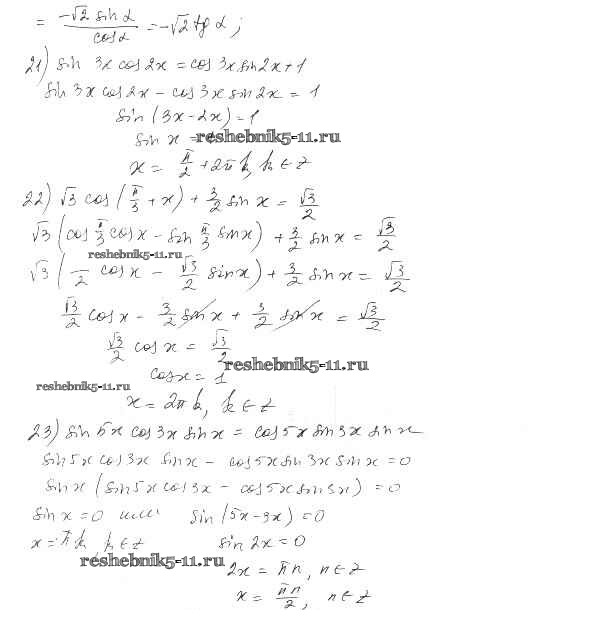 = -√2 sin α / cos α = -√2 tg α ;
21) sin 3x cos 2x = cos 3x sin 2x + 1
sin 3x cos 2x - cos 3x sin 2x = 1
sin (3x - 2x) = 1
sin x = reshebnik5-11.ru
x = π/2 + 2πk, k ∈ z
22) √3 cos (π/3 + x) + 3/2 sin x = √3/2
√3 (cos π/3 cos x - sin π/3 sin x) + 3/2 sin x = √3/2
reshebnik5-11.ru
√3 ( /2 cos x - √3/2 sin x) + 3/2 sin x = √3/2
√3/2 cos x - 3/2 sin x + 3/2 sin x = √3/2
√3/2 cos x = √3/2
reshebnik5-11.ru
cos x = 1
reshebnik5-11.ru
x = 2πk, k ∈ z
23) sin 5x cos 3x sin x = cos 5x sin 3x sin x
sin 5x cos 3x sin x - cos 5x sin 3x sin x = 0
sin x (sin 5x cos 3x - cos 5x sin 3x) = 0
sin x = 0 или sin (5x - 3x) = 0
x = πk, k ∈ z sin 2x = 0
reshebnik5-11.ru
2x = πn, n ∈ z
x = πn/2, n ∈ z